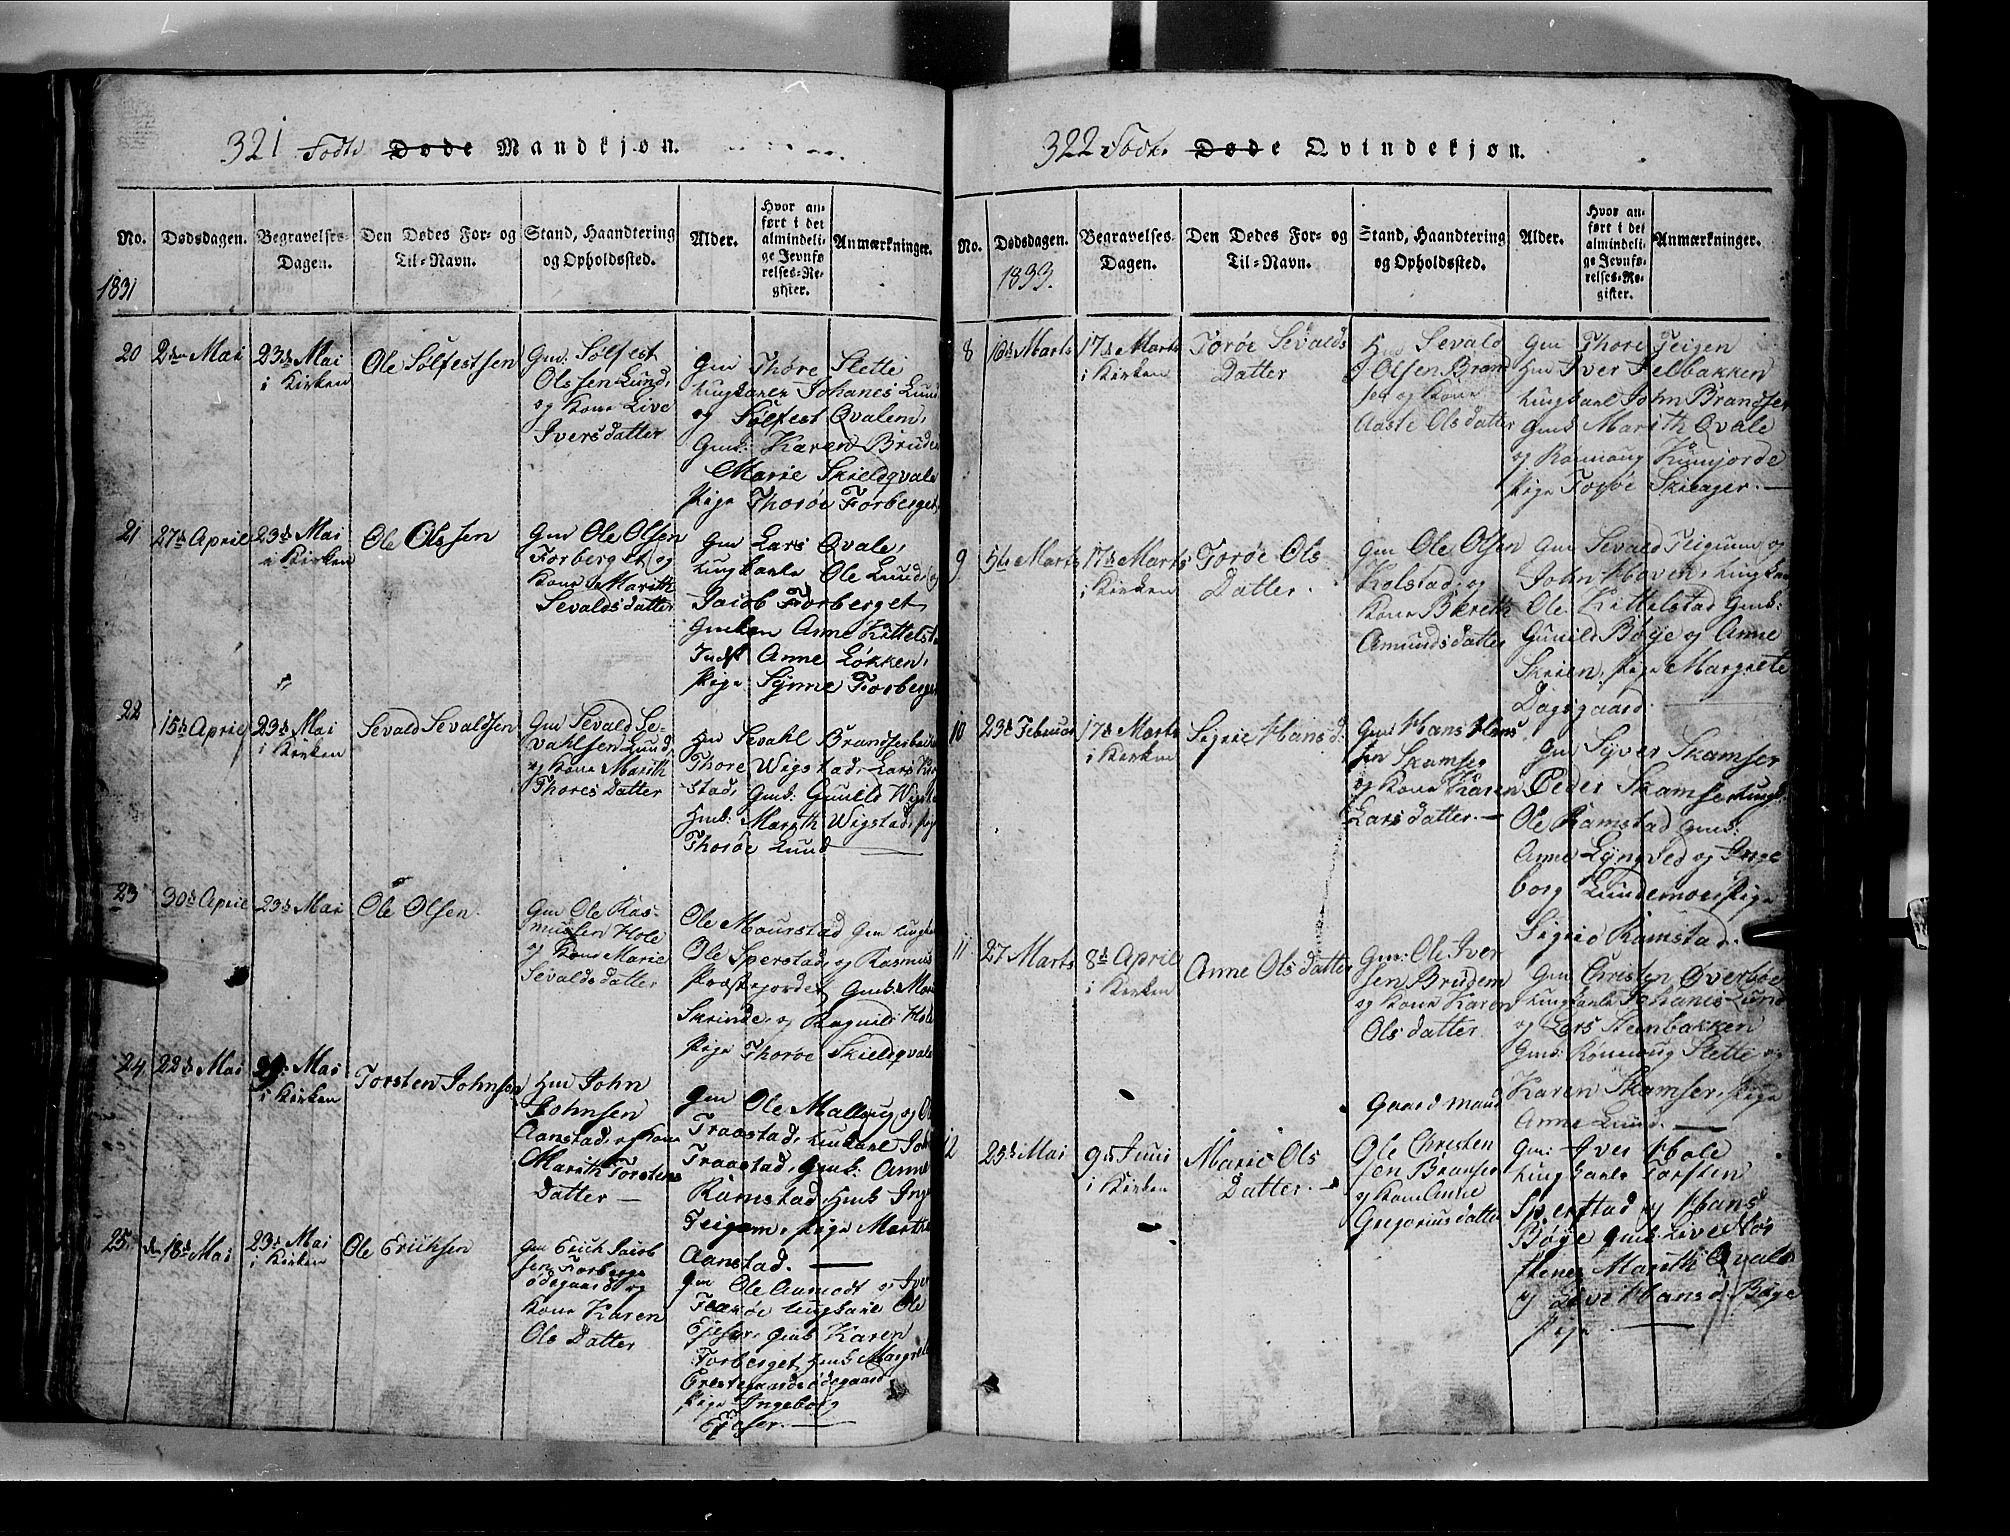 321 Fødte Døde Mandkjøn.
No.
Dødsdagen.
Begravelses-
Dagen.
Den Dødes For- og
Til-Navn.
Stand, Haandtering
og Opholdssted.
Alder.
Hvor an-
ført i det
almindeli-
ge Jevnfø-
relses-Re-
gister.
Anmærkninger.
1831
20
2den Mai
23d Mai
i Kirken
Ole Sølfestsen
Gm: Sølfest
Olssen Lund,
og Kone Live
Ivers datter
Gm Thøre Slette
Ungkarle Johanes Lund
og Sølfest Qvalen,
Gmk: Karen Bruden
Marie Skieldqvale
Pige Thorøe Forberget,
21
27d April
23d Mai
i Kirken
Ole Olssen
Gm Ole Olsen
Forberget og
Kone Marith
Sevalds datter
Gm Lars Qvale,
Ungkarle Ole Lund og
Jacob Forberget,
Gmken Anne Kittelsta
Indst Anne Løkken,
Pige Synne Forberget
22
15d April
23d Mai
i Kirken
Sevald Sevaldsen
Gm Sevald Se-
vahlsen Lund,
og Kone Marith
Thores Datter
Hm Sevahl
Thore Wigstad, Lars
stad, Gmk: Gunild
Hmk: Marith Wigstad, Pige
Thorøe Lund
23
30d April
23d Mai
Ole Olsen.
Gm Ole Ras-
mussen Hole
og Kone Marie
Sevalds datter
Ole Mourstad Gm
Ole Sperstad, og Rasmus
Præstejordet, Gmk: Mari
Skrinde, og Ragnild Hole
Pige Thorøe Skieldqvale
24
22d Mai
Mai
i Kirken
Torsten Johnsen
Hm John
Johnsen
Aanstad, og Kone
Marith Torstens
Datter —
Gm Ole Malleug og
Traastad, Ungkarl
Traastad, Gmk: Anne
Ramstad, Hmk Inge
Teigem, Pige Marthe
Aanstad. —
25.
den 18d Mai
23d Mai
i Kirken
Ole Erichsen
Gm Erich Jacob
sen Forbergs
ødegaard og
Kone Karen
Ols Datter
Gm Ole Aamodt og Iver
Flarøe Ungkarl Ole
Ejefar, Gmk Karen
Forberget, Hmk: Margrete
ødegaard
Pige Ingeborg
—
322 Fødte Døde Qvindekjøn.
No.
Dødsdagen.
Begravelses-
Dagen.
Den Dødes For- og
Til-Navn.
Stand, Haandtering
og Opholdssted.
Alder.
Hvor an-
ført i det
almindeli-
ge Jevnfø-
relses-Re-
gister.
Anmærkninger.
1833.
8
10d Marts
17d Marts
i Kirken
Torøe Sevalds
Datter
Hm Sevald
Olsen Brand
ser og Kone
Aaste Ols datter
Gm Thore Teigen
Hm Iver Felbakken
Ungkarl John Brandser
Gmk Marith Qvale
og Rønnoug
Pige Torøe Skieager. —
9
5d Marts
17d Marts
i Kirken
Torøe Ols
Datter.
Gm Ole Olsen
Kolstad, og
Kone Bereth
Amunds datter
Gm Sevald Teigum og
John Hoven, Ungkarl
Ole Kittelstad Gmk:
Gunild Bøije og Anne
Skrien, Pige Margrete
Dagsgaard.
10
23d Februar
17d Marts
i Kirken
Sigrie Hans d.
Gm: Hans Hans
sen Skamser
og Kone Karen
Lars datter. —
Gm Syver Skamser
Peder Skamser Ungk
Ole Ramstad Gmk:
Anne Lyngved og Inge
borg Lundemoe Pige
Sigrie Ramstad.
11
27 Marts
8d April
i Kirken
Anne Ols datter
Gm: Ole Iver
sen Brudem
og Kone Karen
Ols datter
Gm Christen Øverbøe
Ungkarle Johanes Lund
og Lars Stenbakken
Gmk: Rønnoug Slette og
Karen Skamser, Pige
Anne Lund. —
12
25d Mai
9d Juni
i Kirken
Marie Ols
Datter. —
Gaardmand
Ole Christen
sen Branser
og Kone Anne
Gregorius datter
Gm: Iver Hole
Ungkarle Torsten
Sperstad og Hans
Bøye Gmk: Live Nør
stenes Marith Qvale
og Live Hansd. Bøye
Pige —